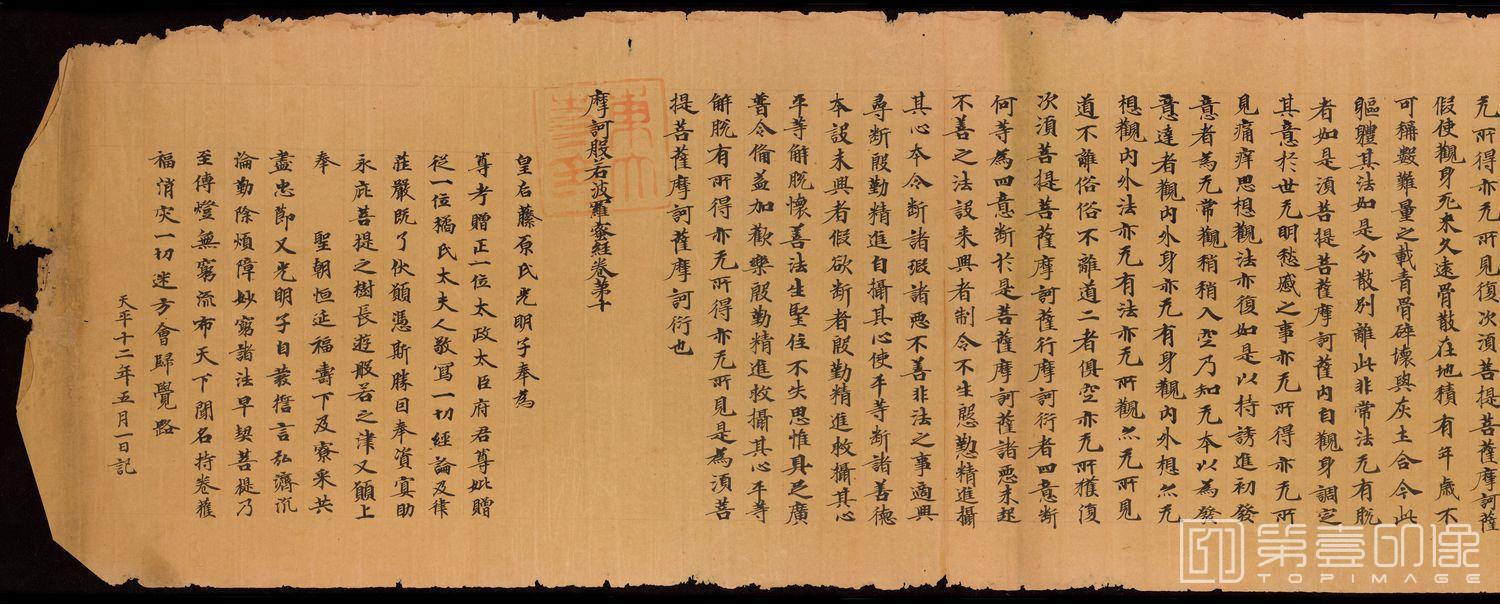 无所得亦无所見復次須菩提菩薩摩訶薩
假使觀身死来久遠骨散在地積有年歳不
可稱數難量之載青骨碎壞與灰土合今此
軀體其法如是分散別離此非常法无有脱
者如是須菩提菩薩摩訶薩内自觀身調定
其意於世无明愁慼之事亦无所得亦无所
見痛痒思想觀法亦復如是以持誘進初發
意者為无常觀稍稍入空乃知无本以為發
意達者觀内外身亦无有身觀内外想亦无
想觀内外法亦无有法亦无所觀亦无所見
道不離俗俗不離道二者俱空亦无所獲復
次須菩提菩薩摩訶薩行摩訶衍者四意断
何等為四意断於是菩薩摩訶薩諸惡未起
不善之法設未興者制令不生慇懃精進攝
其心本令断諸瑕諸惡不善非法之事適興
尋断殷勤精進自攝其心使平等断諸善德
本設未興者假欲断者殷勤精進救攝其心
平等解脱懷善法生堅住不失思惟具足廣
普令倫益加歡樂殷勤精進救攝其心平等
解脱有所得亦无所得亦无所見是為須菩
提菩薩摩訶薩摩訶衍也
摩訶般若波羅蜜經卷第十
皇后藤原氏光明子奉為
尊考贈正一位太政太臣府君尊妣贈
従一位橘氏太夫人敬寫一切經論及律
莊嚴既了伏願憑斯勝因奉資冥助
永庇菩提之樹長遊般若之津又願上
奉 聖朝恒延福壽下及寮采共
盡忠節又光明子自發誓言弘濟沉
淪勤除煩障妙窮諸法早契菩提乃
至傳燈無窮流布天下聞名持卷獲
福消灾一切迷方會歸覺路
天平十二年五月一日記
第壹印像
TOPIMAGE